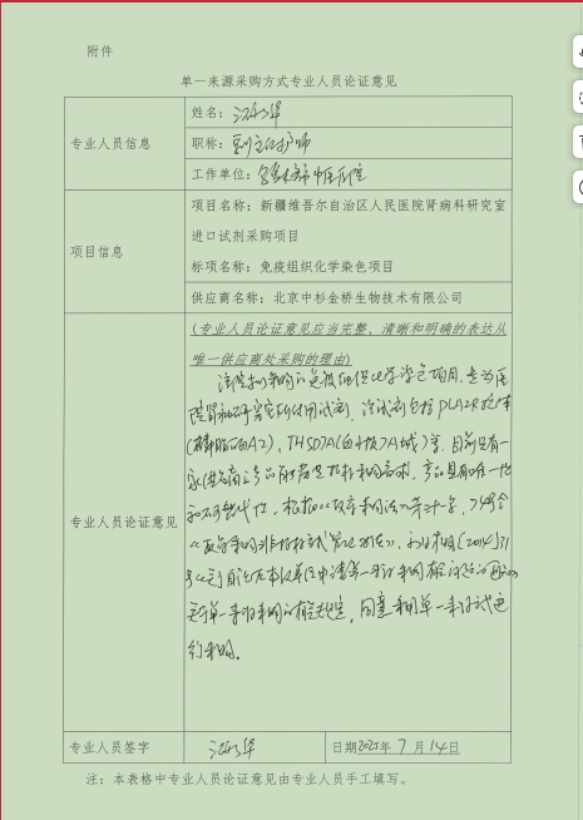 附件
单一来源采购方式专业人员论证意见
专业人员信息
姓名：
职称：副主任护师
工作单位：乌鲁木齐市中医医院
项目信息
项目名称：新疆维吾尔自治区人民医院肾病科研究室
进口试剂采购项目
标项名称：免疫组织化学染色项目
供应商名称：北京中杉金桥生物技术有限公司
专业人员论证意见
(专业人员论证意见应当完整、清晰和明确的表达从
唯一供应商处采购的理由)
该院拟采购的免疫组织化学染色项目，是为医
院肾病研究室所使用试剂，该试剂包括PLA2R抗体
(磷脂酶A2)、THSD7A(血小板7A域)等，目前只有一
家供应商之产品能满足招标采购需求，产品具有唯一性
和不可替代性，根据《政府采购法》第三十一条，74号令
《政府采购非招标方式管理办法》，
单一来源采购的相关规定，同意采用单一来源方式进
行采购。
专业人员签字
日期2025年 7 月 14日
注：本表格中专业人员论证意见由专业人员手工填写。